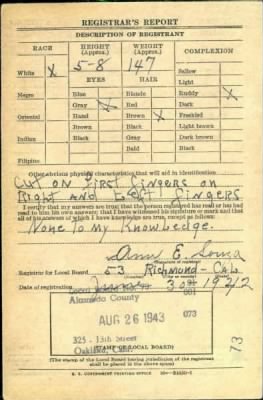 REGISTRAR'S REPORT
DESCRIPTION OF REGISTRANT
RACE HEIGHT (Approx.) WEIGHT (Approx.) COMPLEXION
5-8 147
White X Sallow
EYES HAIR Light
Negro Blue Blonde Ruddy X
Gray X Red Dark
Oriental Hazel Brown X Freckled
Brown Black Light brown
Indian Black Gray Dark brown
Bald Black
Filipino
Other obvious physical characteristics that will aid in identification
Cut on First Fingers on
Right and Left Fingers
I certify that my answers are true; that the person registered has read or has had
read to him his own answers; that I have witnessed his signature or mark and that
all of his answers of which I have knowledge are true, except as follows:
None To My Knowledge.
E.
(Signature of registrar)
Registrar for Local Board 53 Richmond - CAL.
Date of registration 30 1942
Alameda County 001
AUG 26 1943 073
325 - 13th Street
Oakland, Cal.
(STAMP OF LOCAL BOARD)
(The stamp of the Local Board having jurisdiction of the registrant
shall be placed in the above space.)
U. S. GOVERNMENT PRINTING OFFICE
73